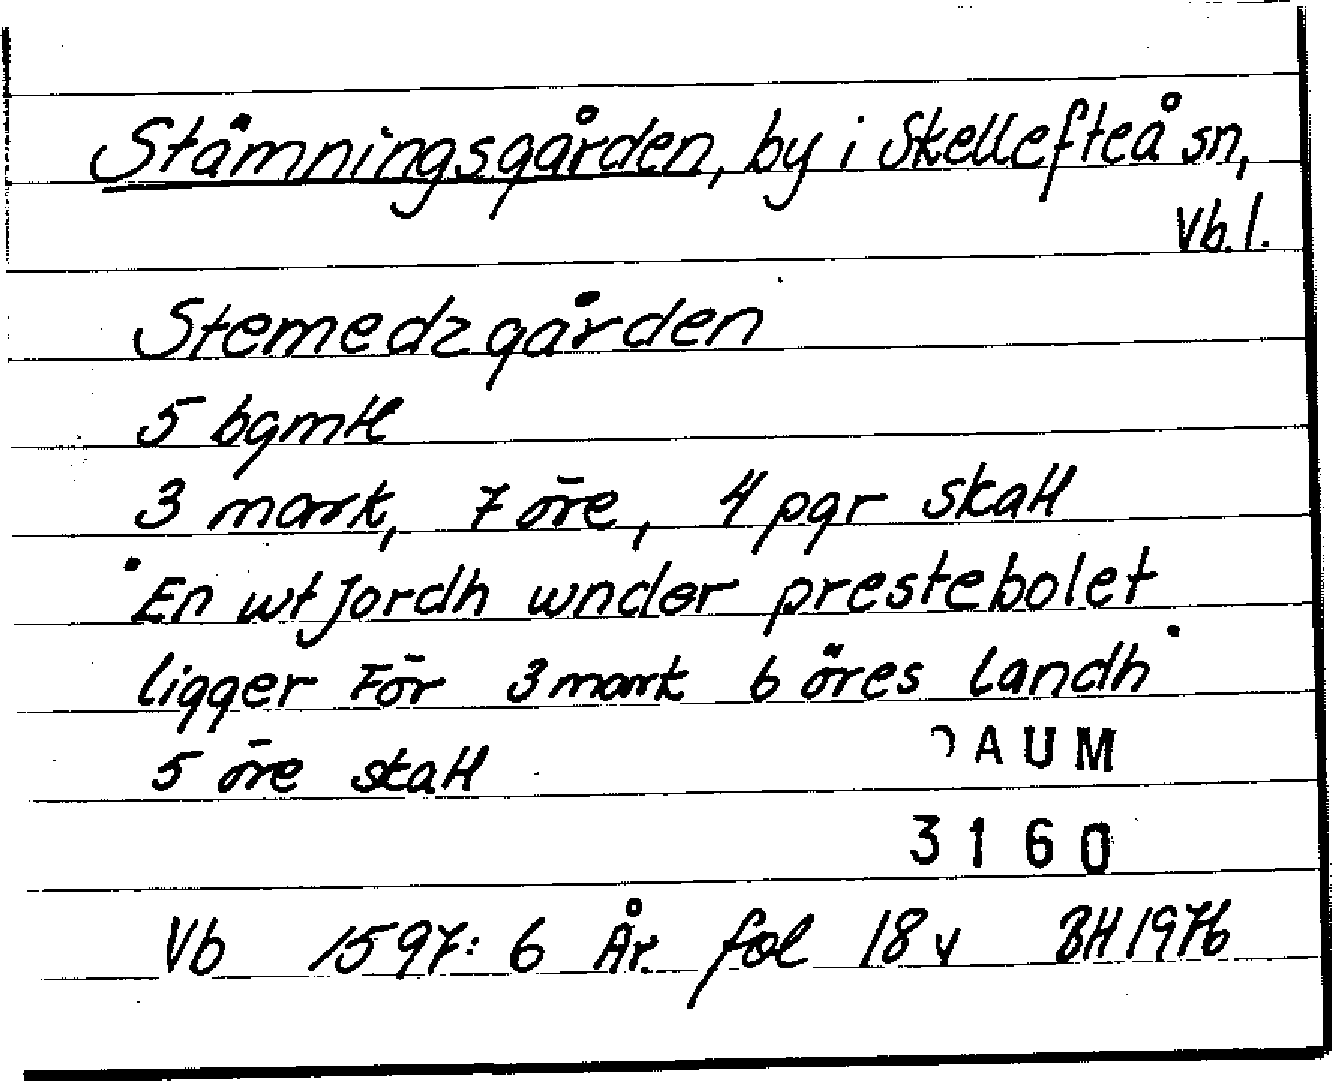 Stämningsgården, by i Skellefteå sn,
Vb. l.
Stemedzgården
5 bgmtl
3 mark, 7 öre, 4 pgr skatt
"En wtjordh wnder prestebolet
ligger För 3 mark 6 öres landh"
5 öre skatt
DAUM
3160
Vb 1597:6 År fol 18 v BH 1976